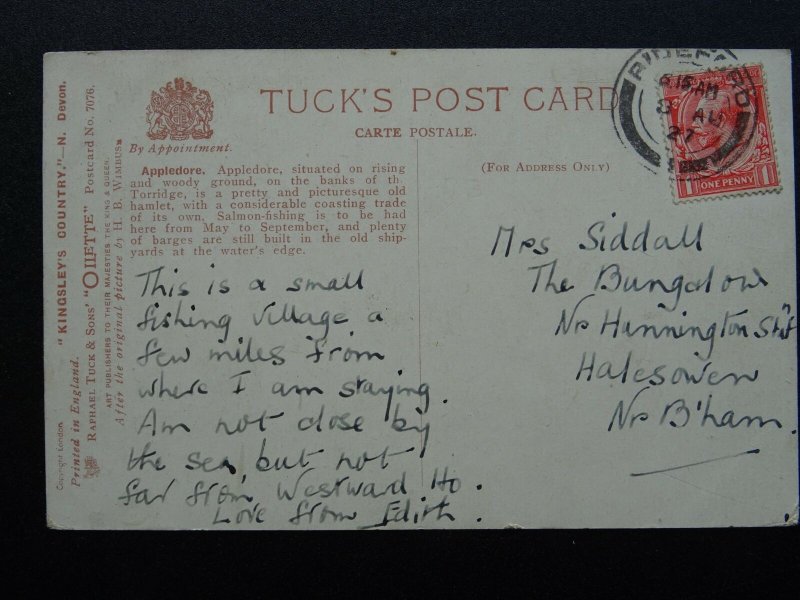 TUCK'S POST CARD
CARTE POSTALE.
By Appointment.
(FOR ADDRESS ONLY)
Appledore. Appledore, situated on rising
and woody ground, on the banks of th
Torridge, is a pretty and picturesque old
hamlet, with a considerable coasting trade
of its own. Salmon-fishing is to be had
here from May to September, and plenty
of barges are still built in the old ship-
yards at the water's edge.
This is a small
fishing village a
few miles from
where I am staying.
Am not close by
the sea, but not
far from Westward Ho.
Love from Edith.
Mrs Siddall
The Bungalow
Nr Hunnington Stn
Halesowen
Nr B'ham.
"KINGSLEY'S COUNTRY,"—N. Devon.
Copyright London
Printed in England.
RAPHAEL TUCK & SONS' "OILETTE" Postcard No. 7076.
ART PUBLISHERS TO THEIR MAJESTIES THE KING & QUEEN.
After the original picture by H. B. WIMBUSH
BIDEFORD
6.15 AM
8 AU
27
1 ONE PENNY 1